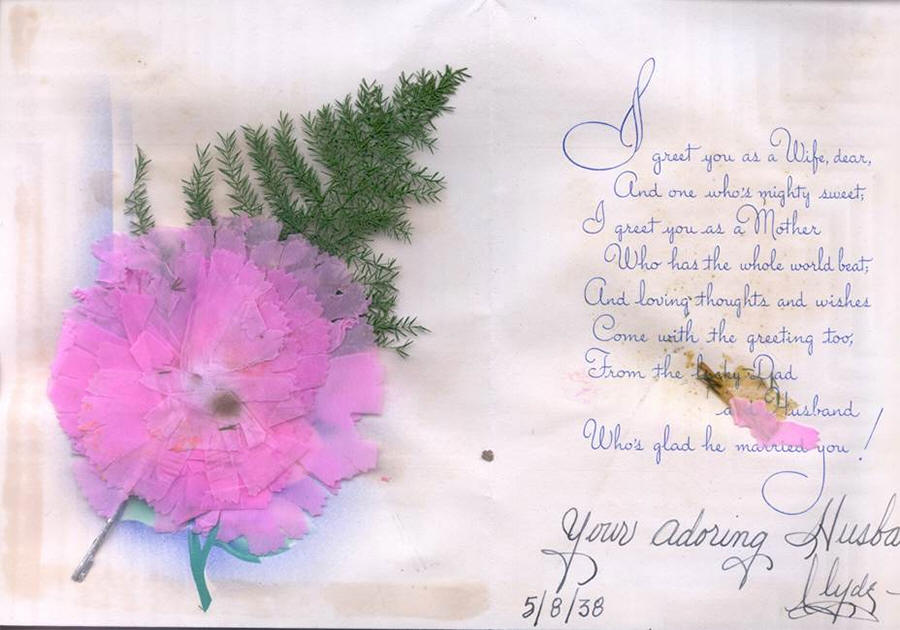 I greet you as a Wife, dear,
And one who's mighty sweet;
I greet you as a Mother
Who has the whole world beat;
And loving thoughts and wishes
Come with the greeting too;
From the lucky Dad
and Husband
Who's glad he married you!
Your adoring Husba
Clyde -
5/8/38